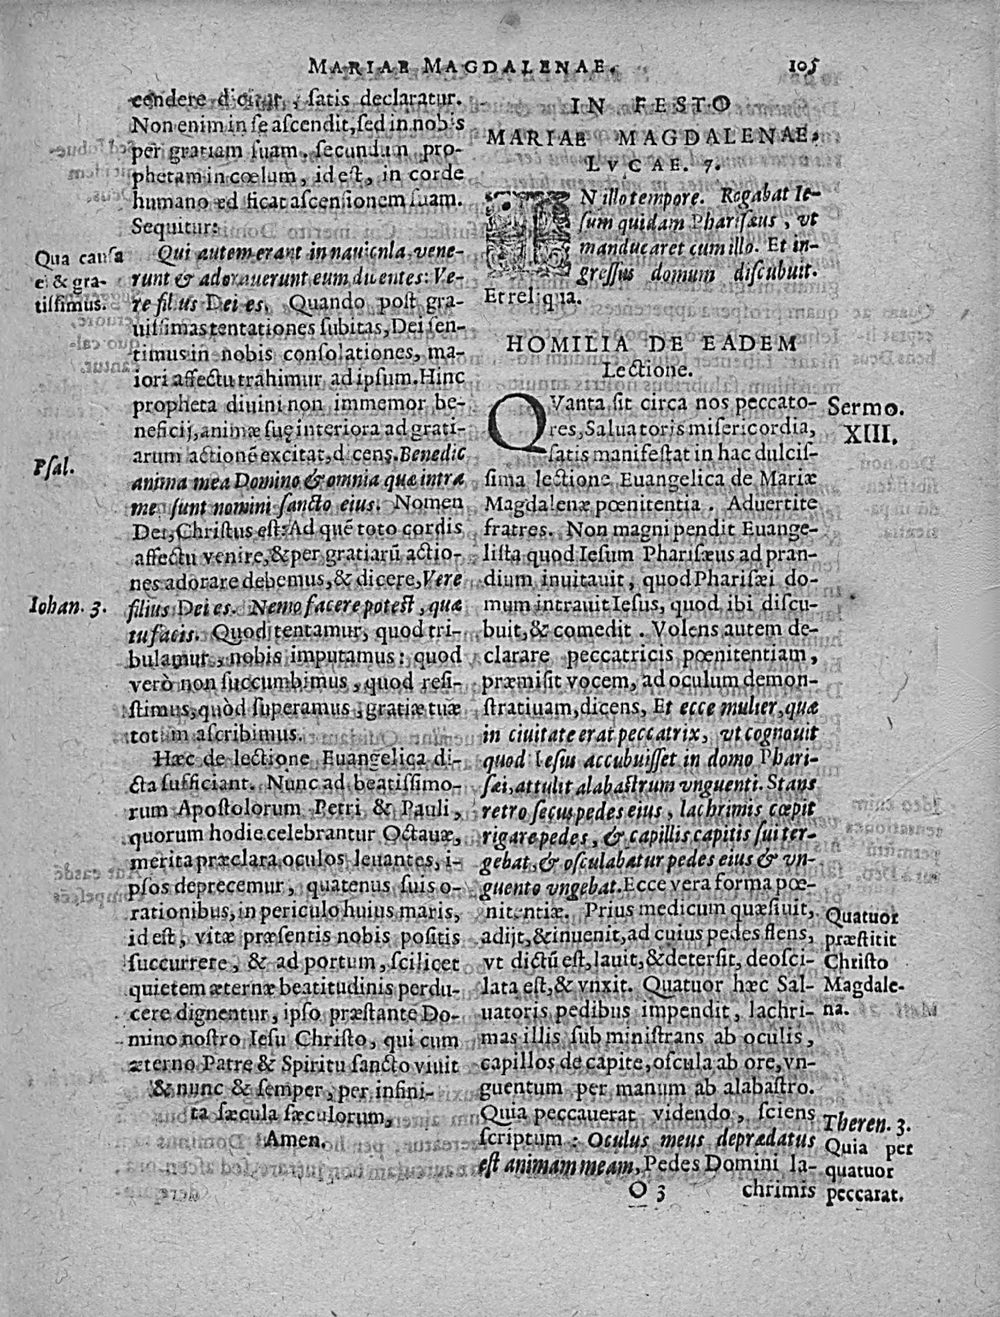 MARIAE MAGDALENAE. 105
cendere dicitur, satis declaratur.
Non enim in se ascendit, sed in nobis
per gratiam suam, secundum pro-
phetam in cœlum, id est, in corde
humano ædificat ascensionem suam.
Sequitur:
Qui autem erant in nauicula, vene-
runt & adorauerunt eum dicentes: Ve-
re filius Dei es. Quando post gra-
uissimas tentationes subitas, Dei sen-
timus in nobis consolationes, ma-
iori affectu trahimur ad ipsum. Hinc
propheta diuini non immemor be-
neficij, animæ suę interiora ad grati-
arum actionē excitat, dicens. Benedic
anima mea Domino & omnia quæ intra
me sunt nomini sancto eius. Nomen
Dei, Christus est: Ad quē toto cordis
affectu venire, & per gratiarū actio-
nes adorare debemus, & dicere, Vere
filius Dei es. Nemo facere potest, quæ
tu facis. Quod tentamur, quod tri-
bulamur, nobis imputamus: quod
verò non succumbimus, quod resi-
stimus, quòd superamus, gratiæ tuæ
totum ascribimus.
Hæc de lectione Euangelica di-
cta sufficiant. Nunc ad beatissimo-
rum Apostolorum Petri & Pauli,
quorum hodie celebrantur Octauæ,
merita præclara oculos leuantes, i-
psos deprecemur, quatenus suis o-
rationibus, in periculo huius maris,
id est, vitæ præsentis nobis positis
succurrere, & ad portum, scilicet
quietem æternæ beatitudinis perdu-
cere dignentur, ipso præstante Do-
mino nostro Iesu Christo, qui cum
æterno Patre & Spiritu sancto viuit
& nunc & semper, per infini-
ta sæcula sæculorum,
Amen.
Qua causa
ei & gra-
tissimus.
Psal.
Iohan. 3.
IN FESTO
MARIAE MAGDALENAE,
LVCAE. 7.
IN illo tempore. Rogabat Ie-
sum quidam Pharisæus, vt
manducaret cum illo. Et in-
gressus domum discubuit.
Et reliqua.
HOMILIA DE EADEM
Lectione.
QVanta sit circa nos peccato-
res, Saluatoris misericordia,
satis manifestat in hac dulcis-
sima lectione Euangelica de Mariæ
Magdalenæ pœnitentia. Aduertite
fratres. Non magni pendit Euange-
lista quod Iesum Pharisæus ad pran-
dium inuitauit, quod Pharisæi do-
mum intrauit Iesus, quod ibi discu-
buit, & comedit. Volens autem de-
clarare peccatricis pœnitentiam,
præmisit vocem, ad oculum demon-
stratiuam, dicens, Et ecce mulier, quæ
in ciuitate erat peccatrix, vt cognouit
quod Iesus accubuisset in domo Phari-
sæi, attulit alabastrum vnguenti. Stans
retro secus pedes eius, lachrimis cœpit
rigare pedes, & capillis capitis sui ter-
gebat, & osculabatur pedes eius & vn-
guento vngebat. Ecce vera forma pœ-
nitentiæ. Prius medicum quæsiuit,
adijt, & inuenit, ad cuius pedes flens,
vt dictū est, lauit, & detersit, deosci-
lata est, & vnxit. Quatuor hæc Sal-
uatoris pedibus impendit, lachri-
mas illis subministrans ab oculis,
capillos de capite, oscula ab ore, vn-
guentum per manum ab alabastro.
Quia peccauerat videndo, sciens
scriptum: Oculus meus deprædatus
est animam meam, Pedes Domini la-
O 3 chrimis
Sermo.
XIII.
Quatuor
præstitit
Christo
Magdale-
na.
Theren. 3.
Quia per
quatuor
peccarat.